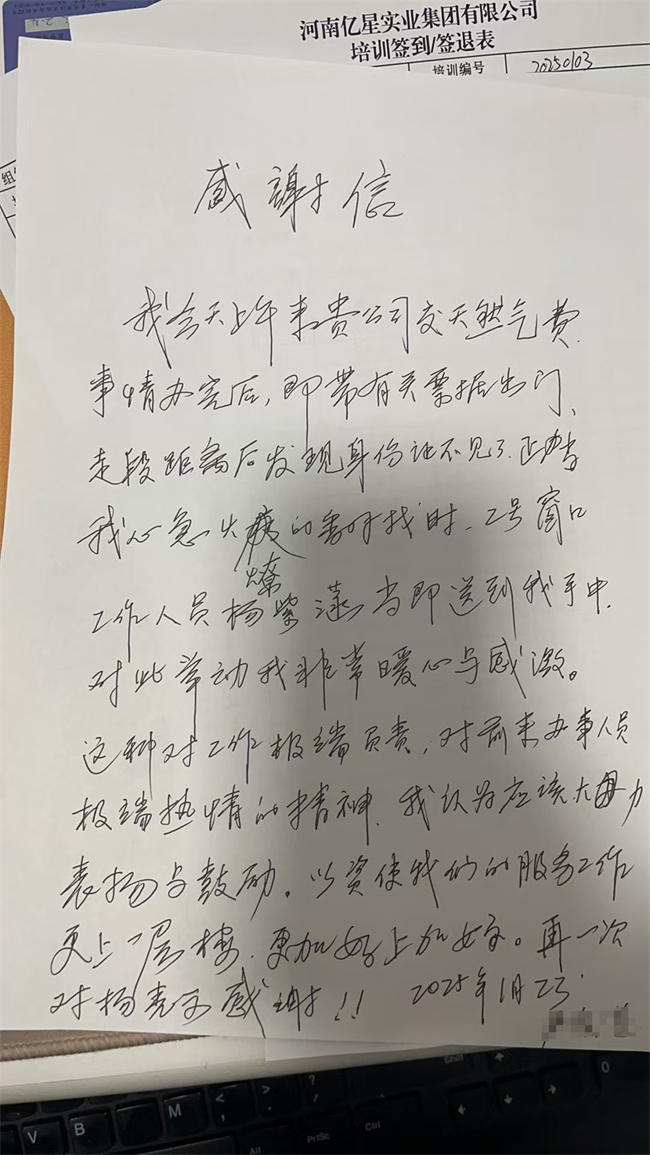 河南亿星实业集团有限公司
培训签到/签退表
培训编号 20250103
感谢信
我今天上午来贵公司交天然气费
事情办完后,即带有关票据出门、
走段距离后发现身份证不见了.正当
我心急火燎的寻找时、2号窗口
工作人员杨紫漾当即送到我手中.
对此举动我非常暖心与感激。
这种对工作极端负责,对前来办事人员
极端热情的精神.我认为应该大力
表扬与鼓励。以资使我们的服务工作
更上一层楼.更加好上加好。再一次
对杨表示感谢!! 2025年1月23
V
B
N
M
Alt
PrtSc
Ctrl
Shift
0